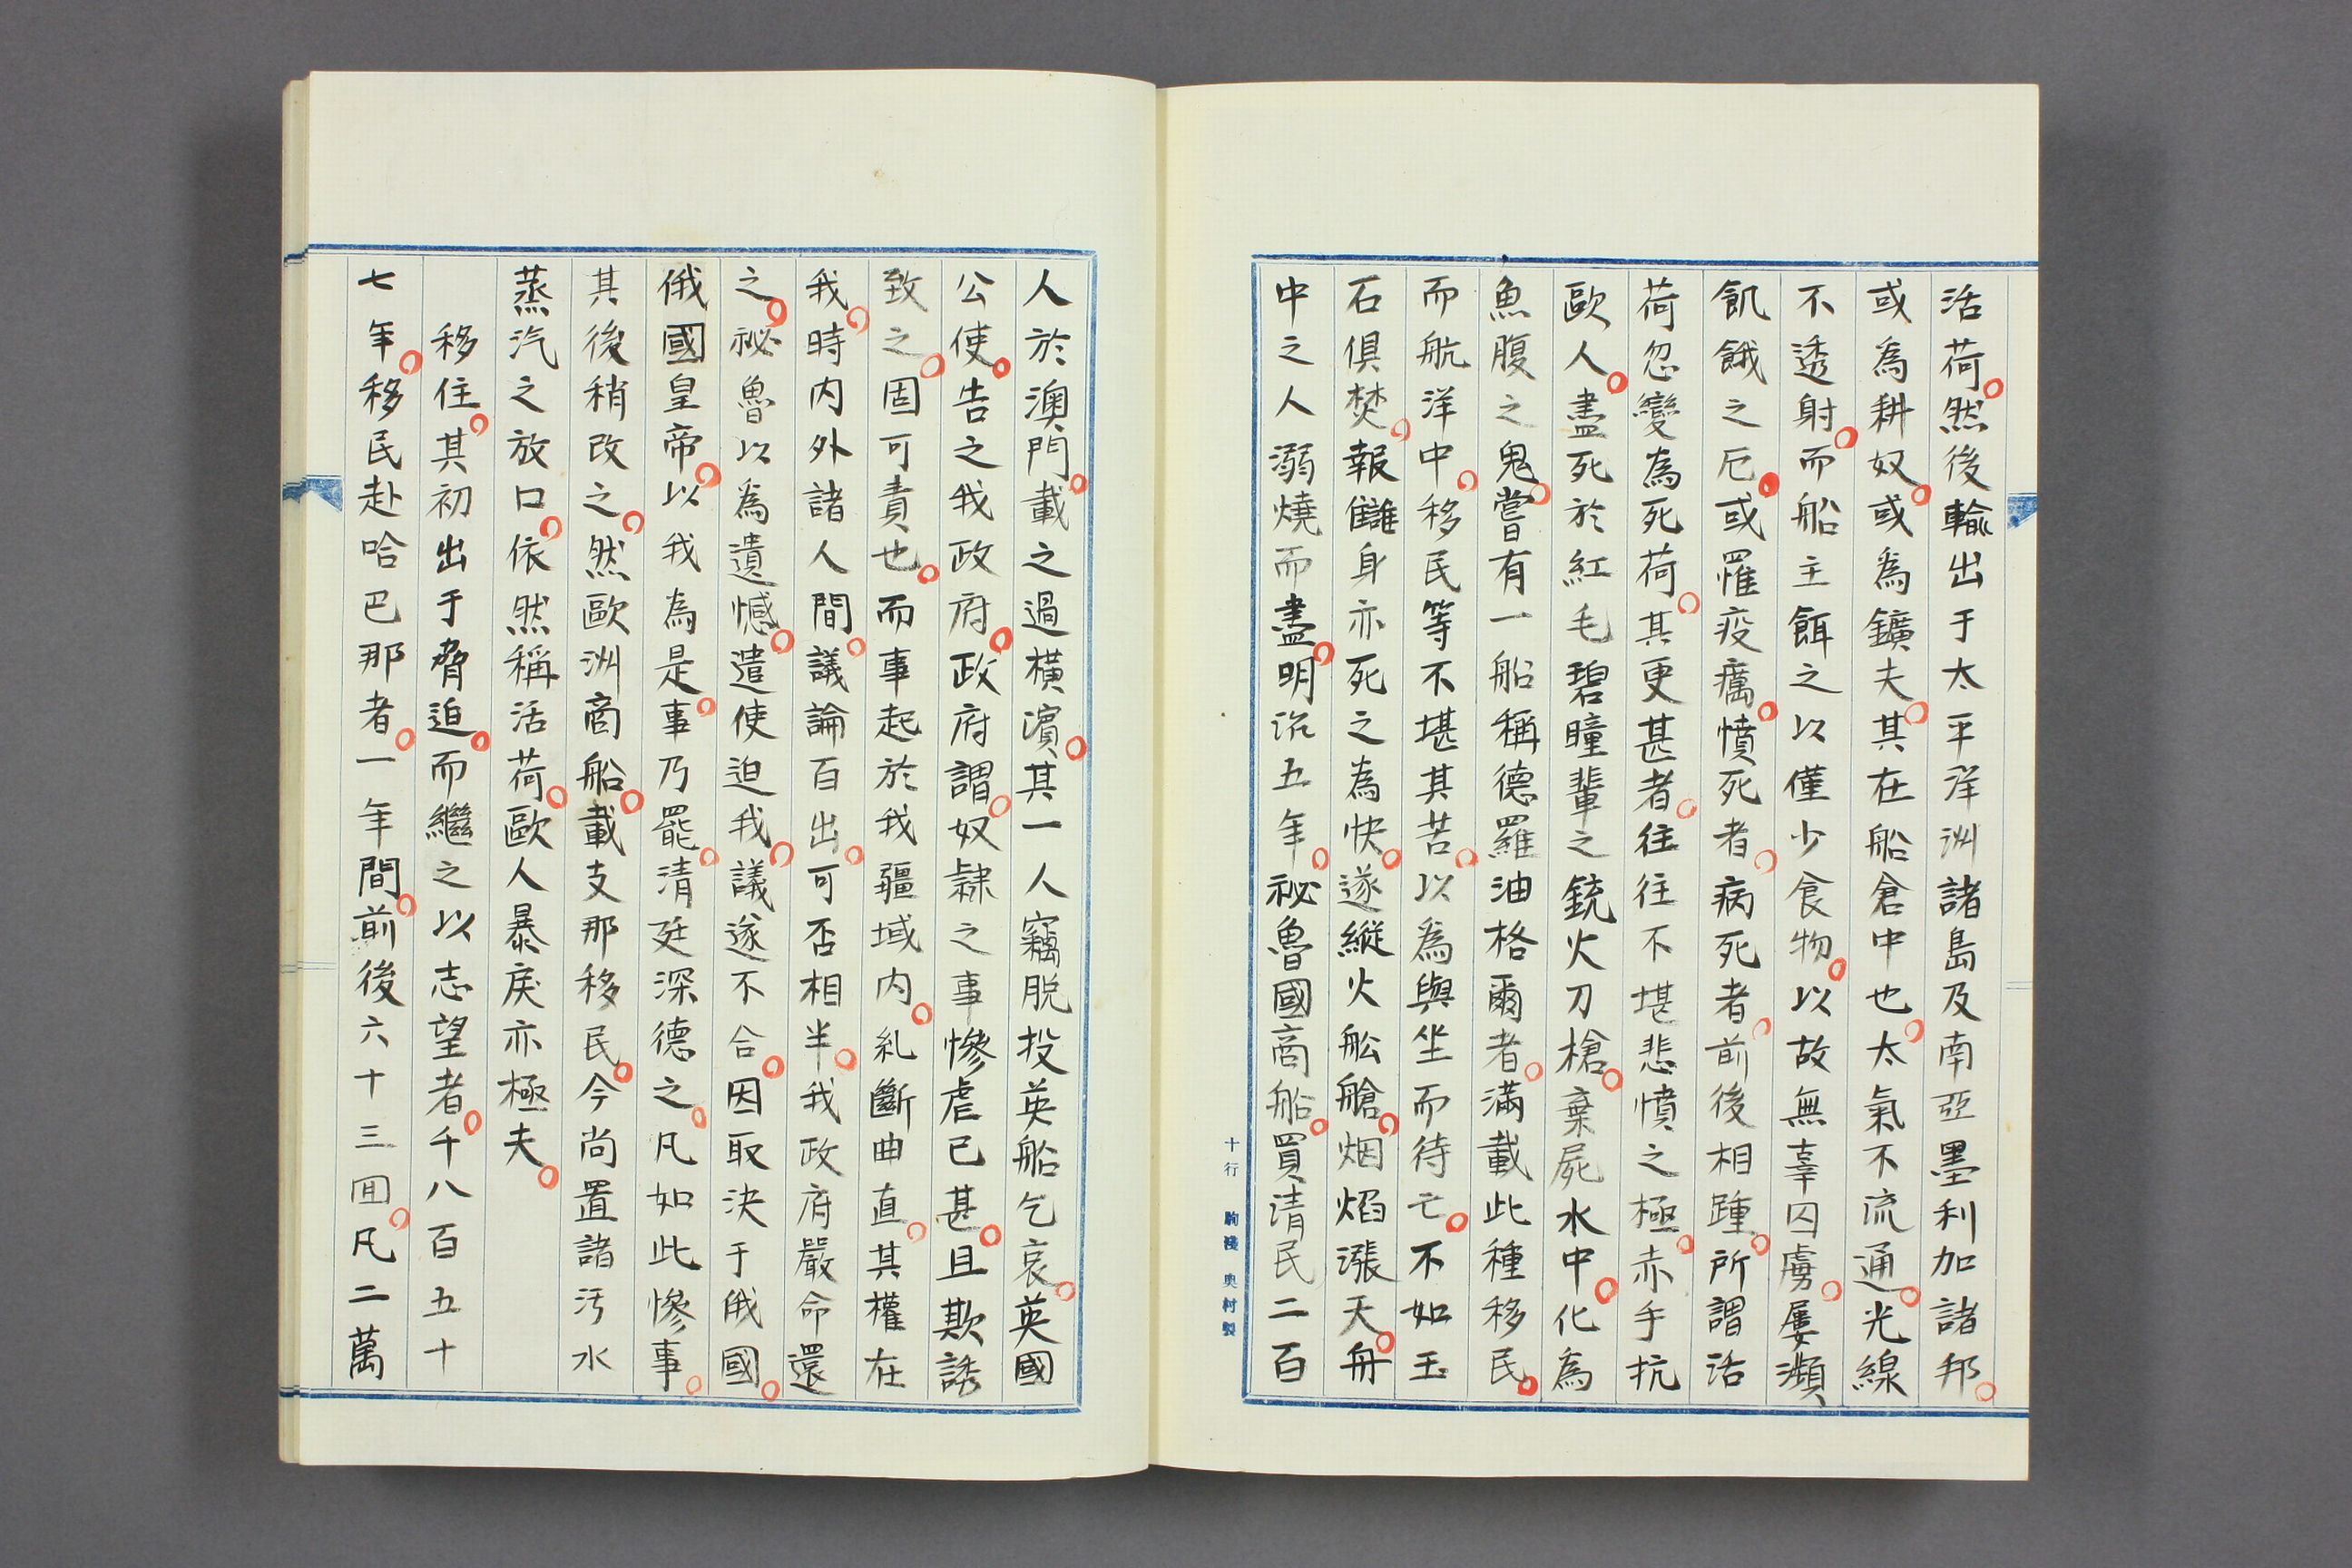 活荷然後輸出于太平洋洲諸島及南亞墨利加諸邦
或為耕奴或為鑛夫其在船倉中也太氣不流通光線
不透射而船主餌之以僅少食物以故無辜囚虜屢瀕
飢餓之厄或罹疫癘憤死者病死者前後相踵所謂活
荷忽變為死荷其更甚者往往不堪悲憤之極赤手抗
歐人盡死於紅毛碧瞳輩之銃火刀槍棄屍水中化為
魚腹之鬼嘗有一船稱德羅油格爾者滿載此種移民
而航洋中移民等不堪其苦以為與坐而待亡不如玉
石俱焚報讎身亦死之為快遂縱火舩艙烟焰漲天舟
中之人溺燒而盡明治五年祕魯國商船買清民二百
十行 奥村製
人於澳門載之過橫濱其一人竊脱投英船乞哀英國
公使告之我政府政府謂奴隸之事慘虐已甚且欺誘
致之固可責也而事起於我疆域内糺斷曲直其權在
我時内外諸人間議論百出可否相半我政府嚴命還
之祕魯以為遺憾遣使迫我議遂不合因取決于俄國
俄國皇帝以我為是事乃罷清廷深德之凡如此慘事
其後稍改之然歐洲商船載支那移民今尚置諸汚水
蒸汽之放口依然稱活荷歐人暴戾亦極夫
移住其初出于脅迫而繼之以志望者千八百五十
七年移民赴哈巴那者一年間前後六十三囬凡二萬